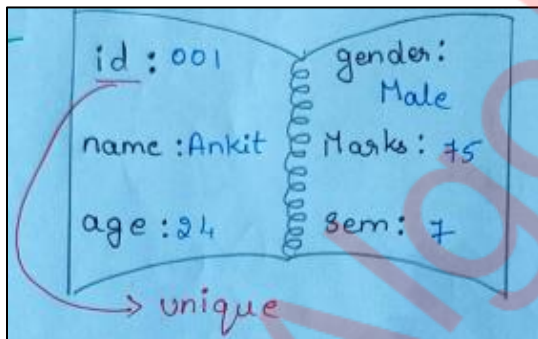 id : 001
name : Ankit
age : 24
gender:
Male
Marks: 75
Sem: 7
unique